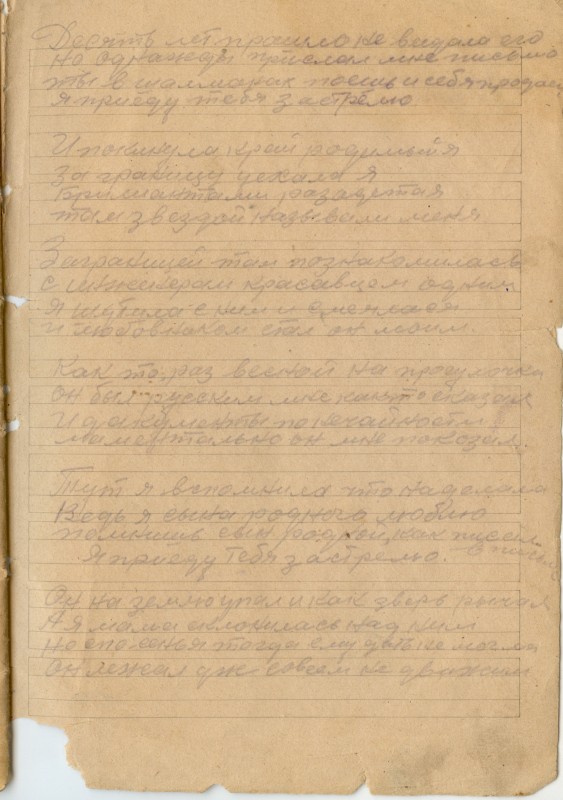 Десять лет прошло не видала его
но однажды прислал мне письмо
ты в шалманах поешь и себя продаеш
я приеду тебя застрелю
И покинула край родимый я
За границу уехала я
Брилиантами разодетая
там звездой называли меня
Заграницей там познакомилась
с инженером красавцем одним
Я шутила с ним и смеялася
и любовником стал он моим.
Как то раз весной на прогулочке
он был русским мне как то сказал
И документы по нечайности
маментально он мне показал
Тут я вспомнила что наделала
Ведь я сына родного люблю
помнишь сын родной, как писал
в письме
Я приеду тебя застрелю.
Он на землю упал и как зверь рычал
А я мама склонилась над ним
но спасенья тогда ему дать не могла
он лежал уж совсем не движим